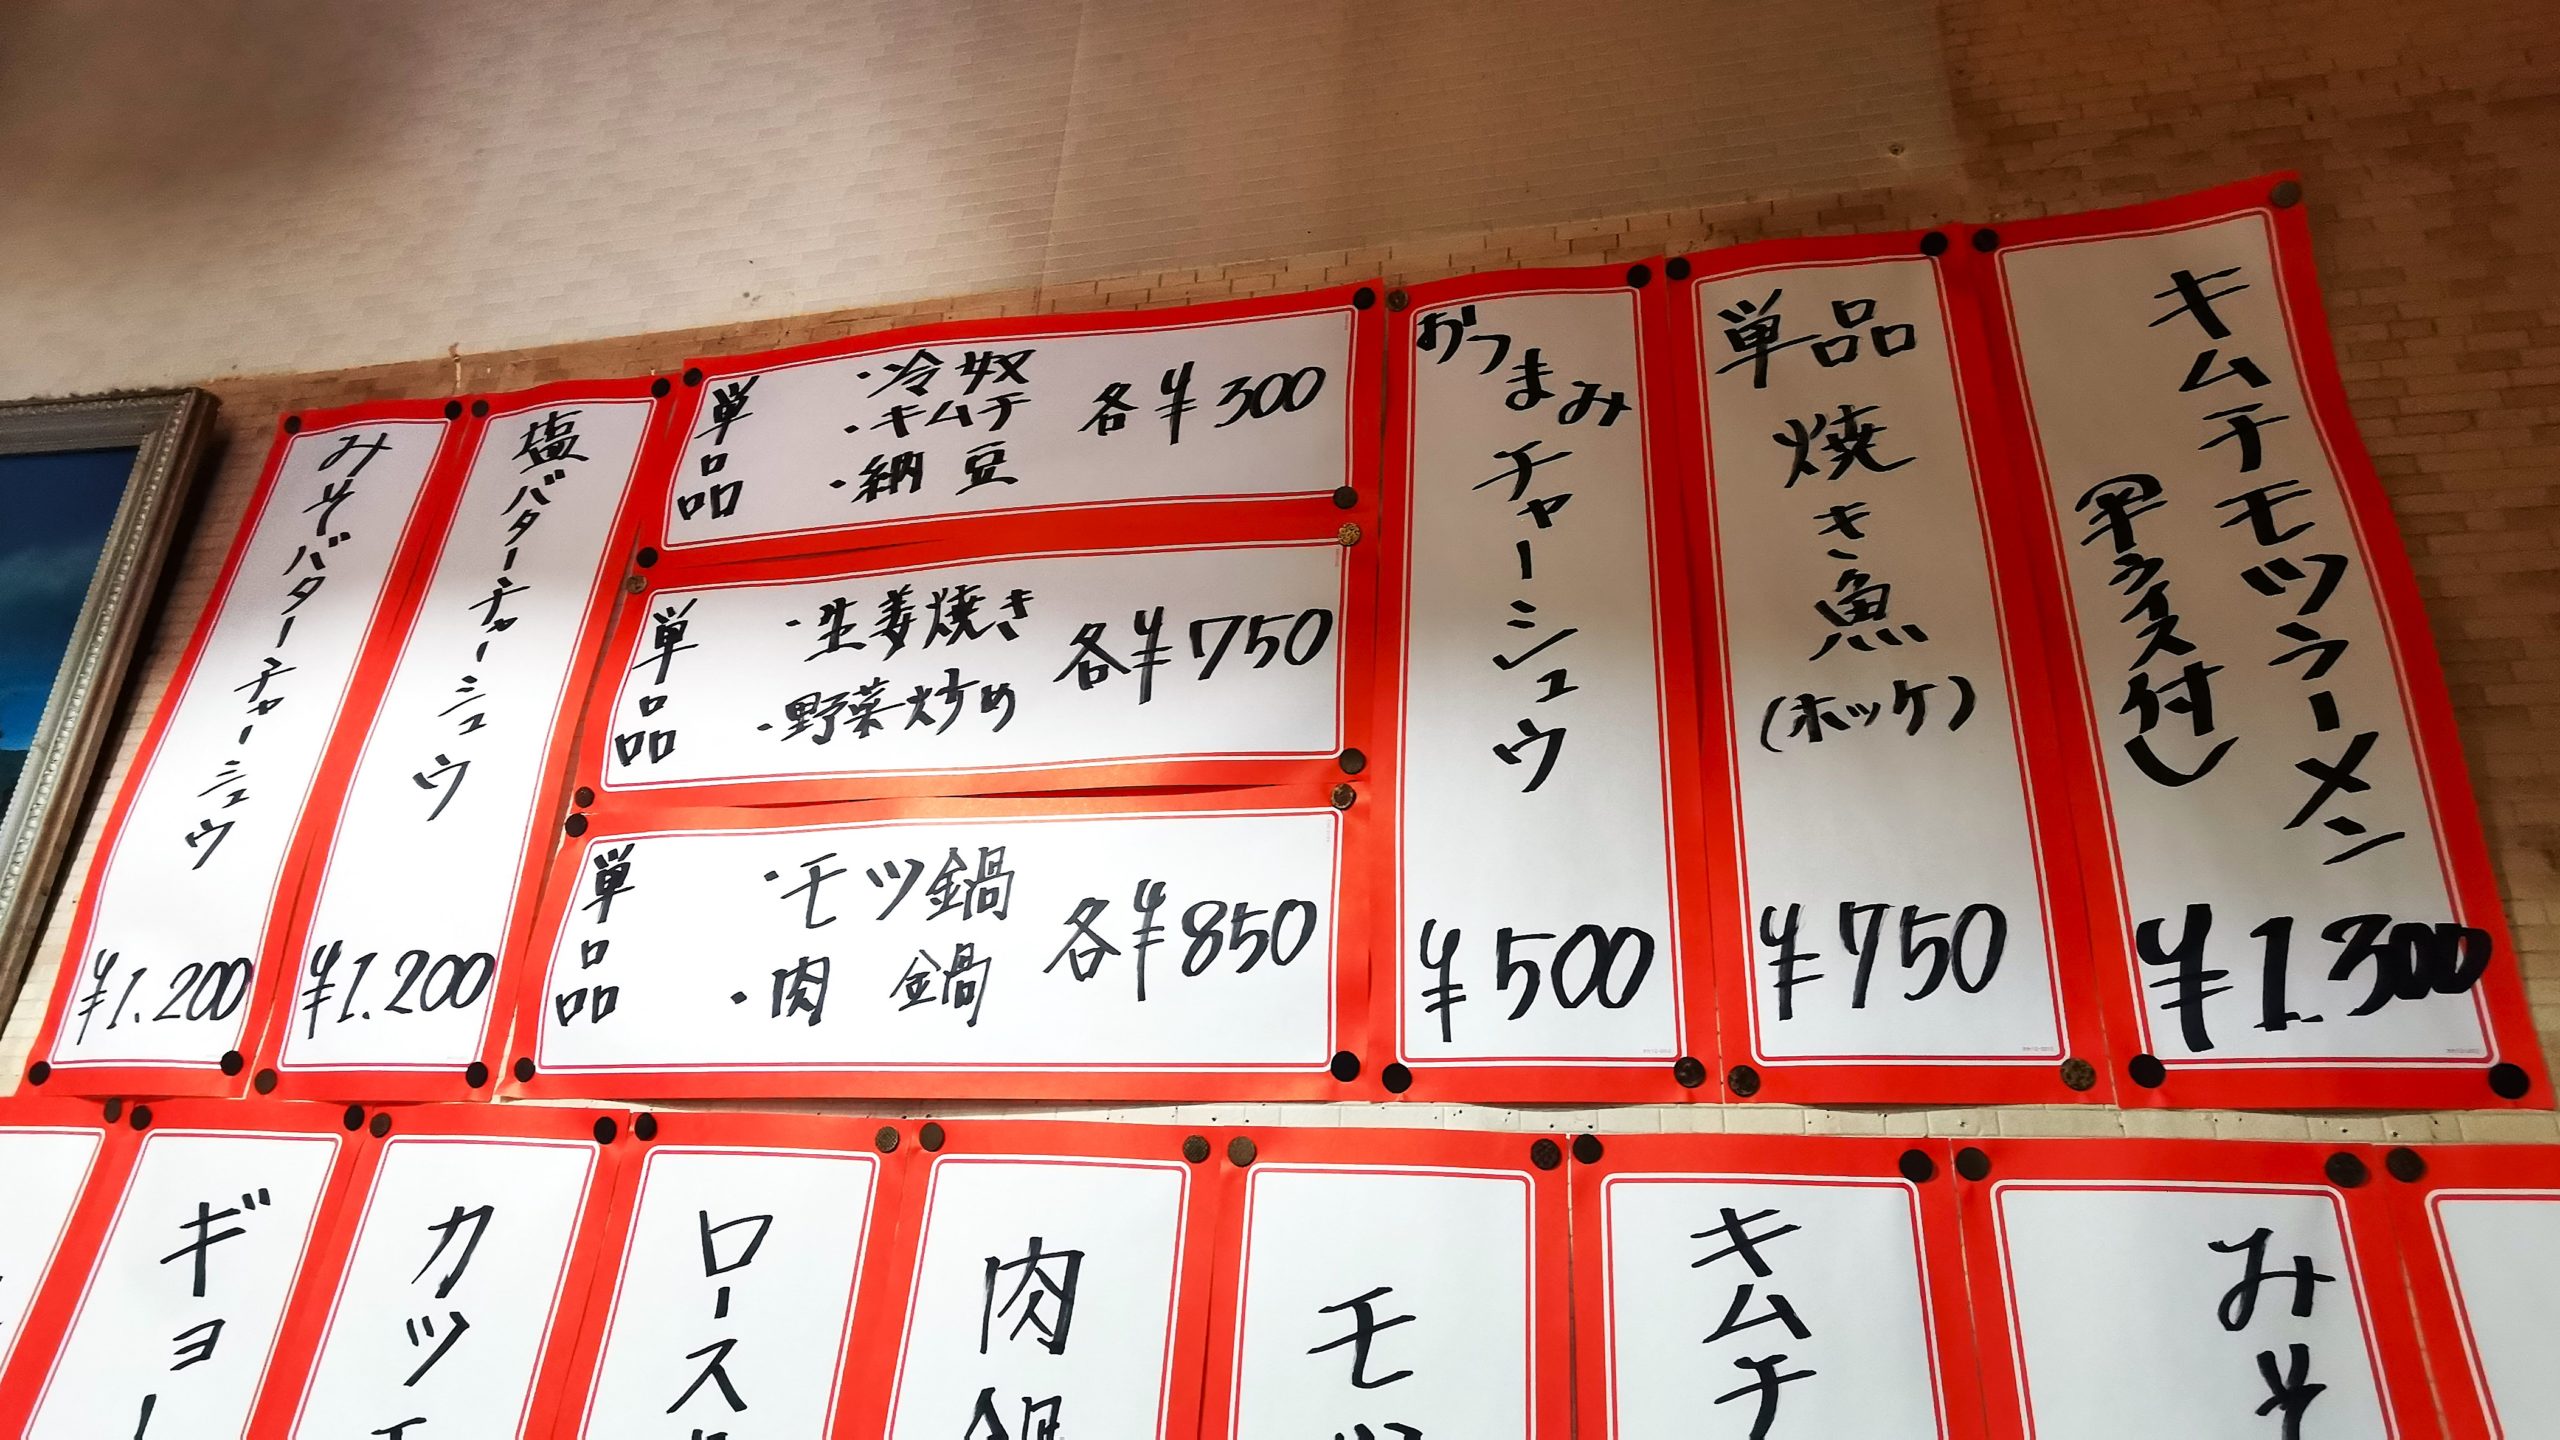 キムチモツラーメン
(半ライス付)
¥1.300
単品
焼き魚
(ホッケ)
¥750
おつまみ
チャーシュウ
¥500
単品
・冷奴
・キムチ
・納豆
各¥300
単品
・生姜焼き
・野菜炒め
各¥750
単品
・モツ鍋
・肉鍋
各¥850
塩バターチャーシュウ
¥1.200
みそバターチャーシュウ
¥1.200
みそ
キムチ
モツ
肉鍋
ロース
カツ
ギョー